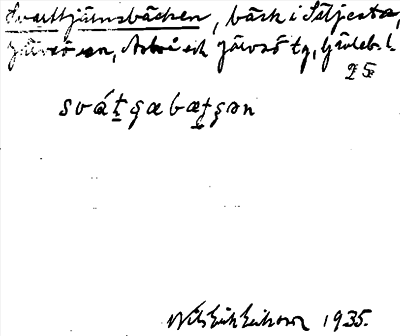 Svarttjärnsbäcken, bäck i Säljesta,
Järvsö sn, Arbrå och Järvsö tg, Gävlebs l.
svát̠ʂæbæt̠ʂən
Nils Erik Eriksson 1935.